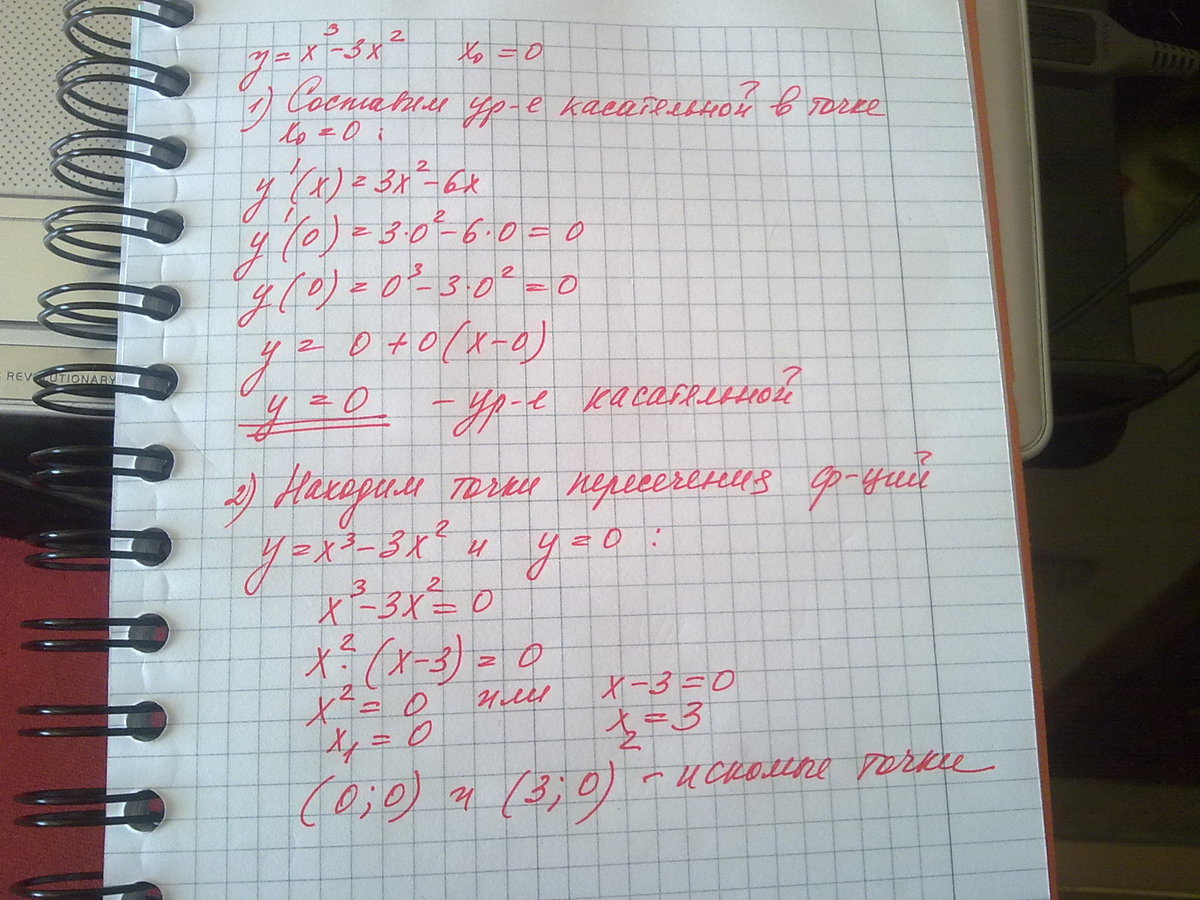 y = x³ - 3x²   x₀ = 0
1) Составим ур-е касательной в точке
x₀ = 0 :
y'(x) = 3x² - 6x
y'(0) = 3·0² - 6·0 = 0
y(0) = 0³ - 3·0² = 0
y = 0 + 0(x-0)
REVOLUTIONARY
y = 0 - ур-е касательной
2) Находим точки пересечения ф-ций
y = x³ - 3x² и y = 0 :
x³ - 3x² = 0
x²·(x-3) = 0
x² = 0 или x - 3 = 0
x₁ = 0   x₂ = 3
(0;0) и (3;0) - искомые точки